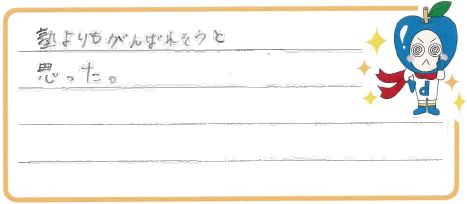 塾よりもがんばれそうと
思った。
d